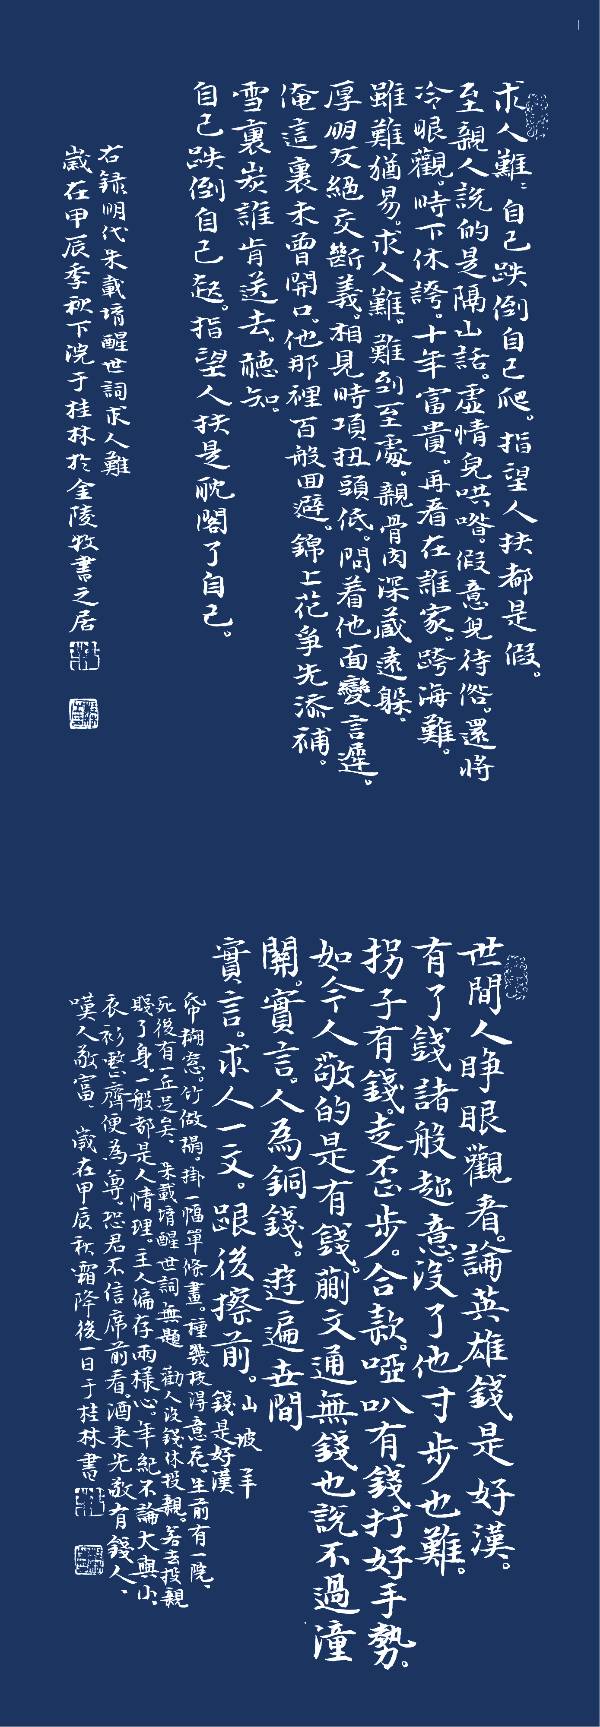 求人難：自己跌倒自己爬。指望人扶都是假。
至親人說的是隔山話。虛情兒哄喒。假意兒待俗。還將
冷眼觀。時下休誇。十年富貴。再看在誰家。跨海難。
雖難猶易。求人難。難到至處。親骨肉深藏遠躲、
厚朋友絕交斷義。相見時項扭頭低。問着他面變言遲。
俺這裏未曾開口。他那裡百般回避。錦上花爭先添補。
雪裏炭誰肯送去。聽知。
自己跌倒自己起。指望人扶是耽閣了自己。
右錄明代朱載堉醒世詞求人難
歲在甲辰季秋下浣于桂林於金陵牧書之居
世間人睜眼觀看。論英雄錢是好漢。
有了錢諸般趁意。沒了他寸步也難。
拐子有錢。走歪步。合款。啞叭有錢。打好手勢。
如今人敬的是有錢。蒯文通無錢也說不過潼
關。實言。人為銅錢。遊遍世間
實言。求人一文。跟後擦前。
山坡羊
錢是好漢
帛糊窓。竹做隔。掛一幅單條畫。種幾枝得意花。生前有一院、
死後有一丘足矣、朱載堉醒世詞無題 勸人沒錢休投親。若去投親
賤了身。一般都是人情理。主人偏存兩樣心。年紀不論大與小、
衣衫整齊便為尊。恐君不信席前看。酒來先敬有錢人、
嘆人敬富、歲在甲辰秋霜降後一日于桂林書